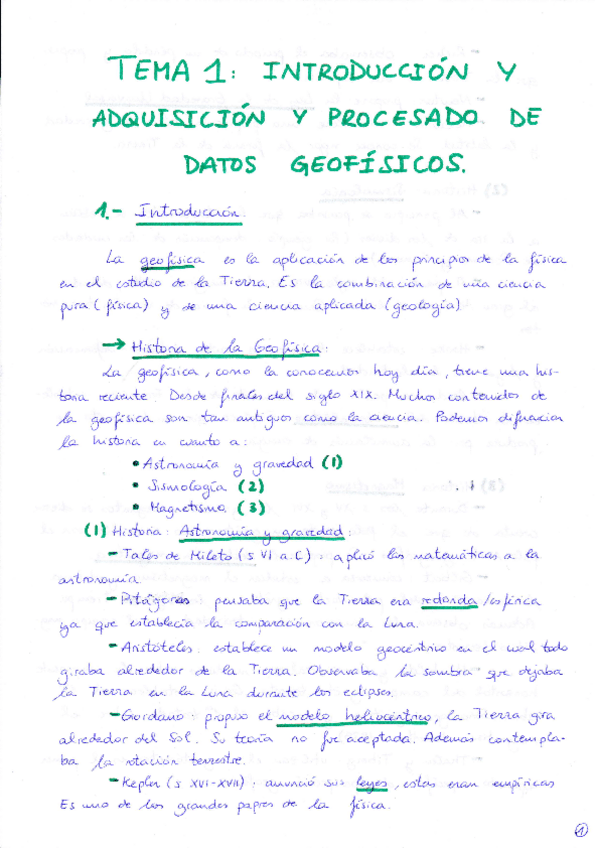 TEMA 1: INTRODUCCIÓN Y
ADQUISICIÓN Y PROCESADO DE
DATOS GEOFÍSICOS.
1.- Introducción:
La geofísica es la aplicación de los principios de la física
en el estudio de la Tierra. Es la combinación de una ciencia
pura (física) y de una ciencia aplicada (geología)
→ Historia de la Geofísica:
La geofísica, como la conocemos hoy día, tiene una his-
toria reciente. Desde finales del siglo XIX. Muchos contenidos de
la geofísica son tan antiguos como la ciencia. Podemos diferenciar
la historia en cuanto a:
• Astronomía y gravedad (1)
• Sismología (2)
• Magnetismo (3)
(1) Historia: Astronomía y gravedad:
- Tales de Mileto (s VI a.C): aplicó las matemáticas a la
astronomía
- Pitágoras: pensaba que la Tierra era redonda/esférica
ya que establecía la comparación con la Luna.
- Aristóteles: establece un modelo geocéntrico en el cual todo
giraba alrededor de la Tierra. Observaba la sombra que dejaba
la Tierra en la Luna durante los eclipses.
- Giordano: propuso el modelo heliocéntrico, la Tierra gira
alrededor del Sol. Su teoría no fue aceptada. Además contempla-
ba la rotación terrestre.
- Kepler (s XVI-XVII): anunció sus leyes, estas eran empíricas
Es uno de los grandes papres de la física.
1